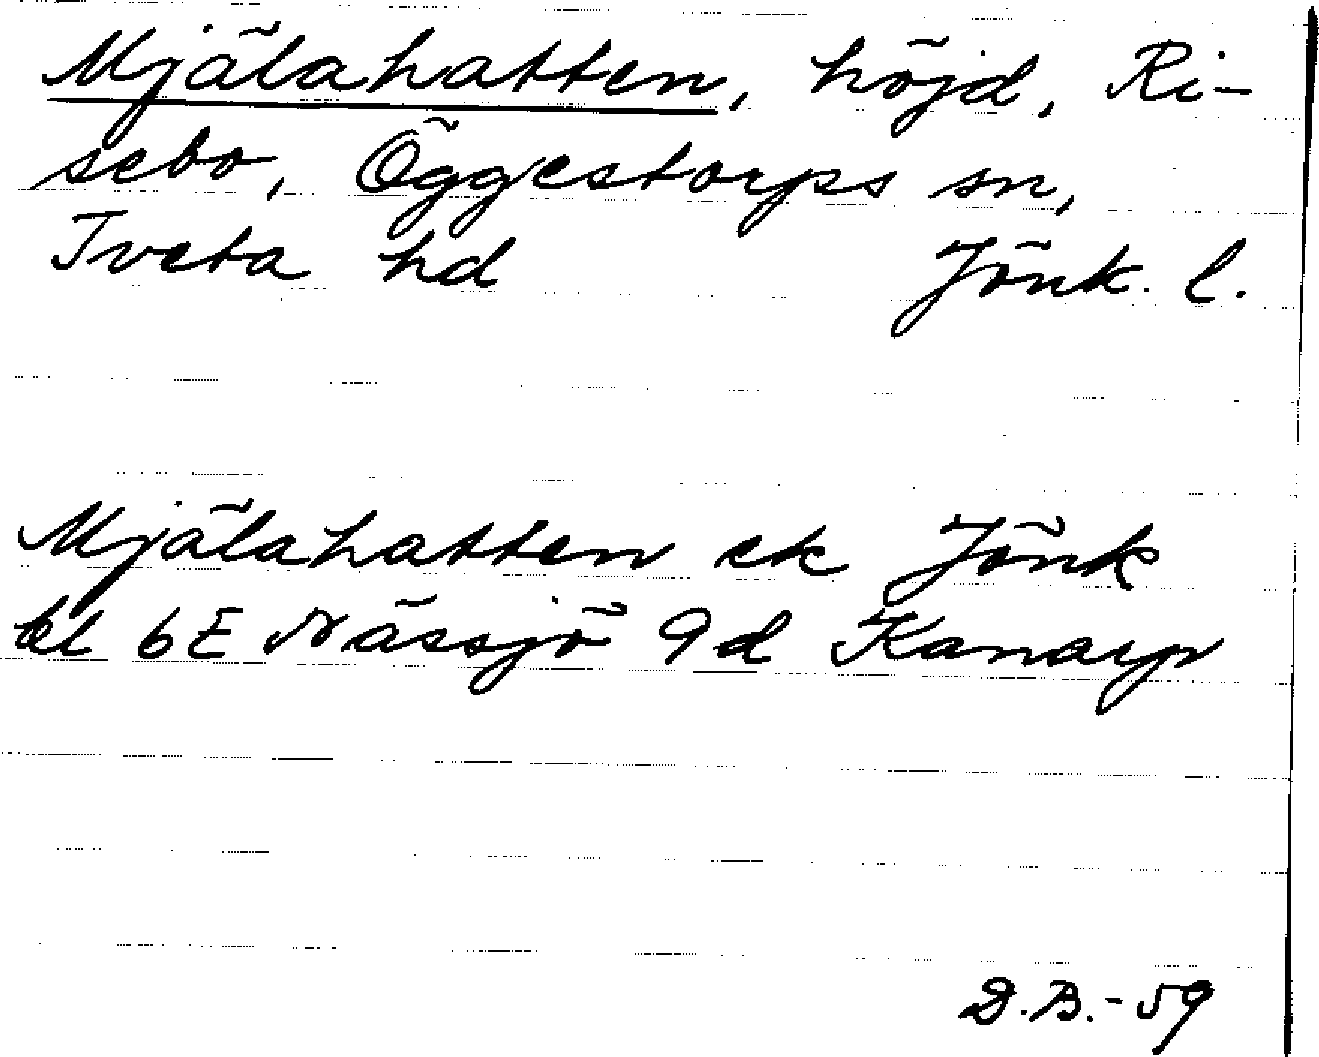 Mjälahatten, höjd, Ri-
sebo, Öggestorps sn,
Tveta hd Jönk. l.
Mjälahatten ek Jönk
bl 6E Nässjö 9d Kanarp
D.B.-59